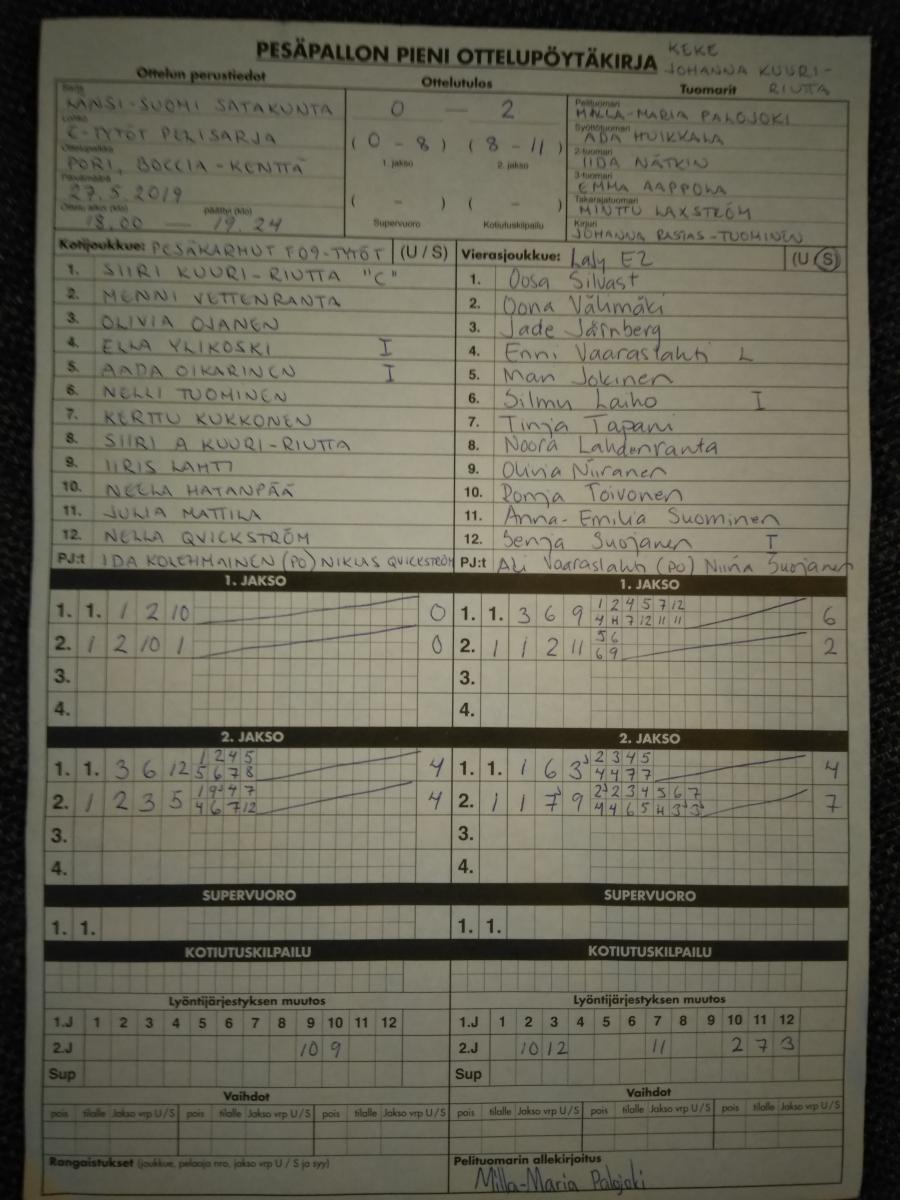 PESÄPALLON PIENI OTTELUPÖYTÄKIRJA
KEKE
JOHANNA KUURI-
RIUTTA
Ottelun perustiedot
Ottelutulos
Tuomarit
Sarja
LÄNSI-SUOMI SATAKUNTA
Lohko
C-TYTÖT PELISARJA
Ottelupaikka
PORI, BOCCIA-KENTTÄ
Päivämäärä
27.5.2019
Ottelu alkoi (klo) päättyi (klo)
18.00 — 19.24
0 — 2
( 0 - 8 ) ( 8 - 11 )
1. jakso 2. jakso
( - ) ( - )
Supervuoro Kotiutuskilpailu
Pelituomari
MILLA-MARIA PALOJOKI
Syöttötuomari
ADA HUIKKALA
2-tuomari
IIDA NÄTKIN
3-tuomari
EMMA AAPPOLA
Takarajatuomari
MINTTU LAXSTRÖM
Kirjuri
JOHANNA RASIAS-TUOMINEN
Kotijoukkue: PESÄKARHUT F09-TYTÖT (U / S)
1. SIIRI KUURI-RIUTTA "C"
2. MENNI VETTENRANTA
3. OLIVIA OJANEN
4. ELLA YLIKOSKI I
5. AADA OIKARINEN I
6. NELLI TUOMINEN
7. KERTTU KUKKONEN
8. SIIRI A KUURI-RIUTTA
9. IIRIS LAHTI
10. NELLA HATANPÄÄ
11. JULIA MATTILA
12. NELLA QVICKSTRÖM
PJ:t IDA KOLEHMAINEN (PO) NIKLAS QVICKSTRÖM
Vierasjoukkue: Laly E2 (U S)
1. Oosa Silvast
2. Oona Välimäki
3. Jade Järnberg
4. Enni Vaaraslahti L
5. Mari Jokinen
6. Silmu Laiho I
7. Tinja Tapani
8. Noora Lahdenranta
9. Olivia Niiranen
10. Ronja Toivonen
11. Anna-Emilia Suominen
12. Senja Suojanen I
PJ:t Ali Vaaraslahti (PO) Niina Suojanen
1. JAKSO
1. 1. 1 2 10 0
2. 1 2 10 1 0
3.
4.
1. JAKSO
1. 1. 3 6 9 1 2 4 5 7 12 6
4 H 7 12 11 11
2. 1 1 2 11 5 6 2
6 9
3.
4.
2. JAKSO
1. 1. 3 6 12 1 2 4 5 4
5 6 7 8
2. 1 2 3 5 1 9 4 7 4
4 6 7 12
3.
4.
2. JAKSO
1. 1. 1 6 3 2 3 4 5 4
4 4 7 7
2. 1 1 7 9 2 2 3 4 5 6 7 7
4 4 6 5 H 3 3
3.
4.
SUPERVUORO
1. 1.
SUPERVUORO
1. 1.
KOTIUTUSKILPAILU
KOTIUTUSKILPAILU
Lyöntijärjestyksen muutos
1.J 1 2 3 4 5 6 7 8 9 10 11 12
2.J 10 9
Sup
Lyöntijärjestyksen muutos
1.J 1 2 3 4 5 6 7 8 9 10 11 12
2.J 10 12 11 2 7 3
Sup
Vaihdot
pois tilalle Jakso vrp U / S pois tilalle Jakso vrp U / S pois tilalle Jakso vrp U / S
Vaihdot
pois tilalle Jakso vrp U / S pois tilalle Jakso vrp U / S pois tilalle Jakso vrp U / S
Rangaistukset (joukkue, pelaaja nro, jakso vrp U / S ja syy)
Pelituomarin allekirjoitus
Milla-Maria Palojoki